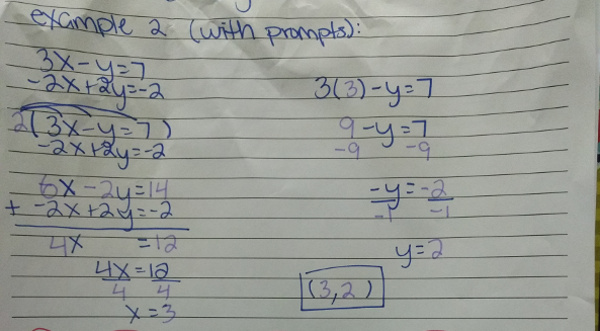 example 2 (with prompts):
3x - y = 7
-2x + 2y = -2
2(3x - y = 7)
-2x + 2y = -2
6x - 2y = 14
+ -2x + 2y = -2
4x = 12
4x = 12
4 4
x = 3
3(3) - y = 7
9 - y = 7
-9 -9
-y = -2
-1 -1
y = 2
(3, 2)